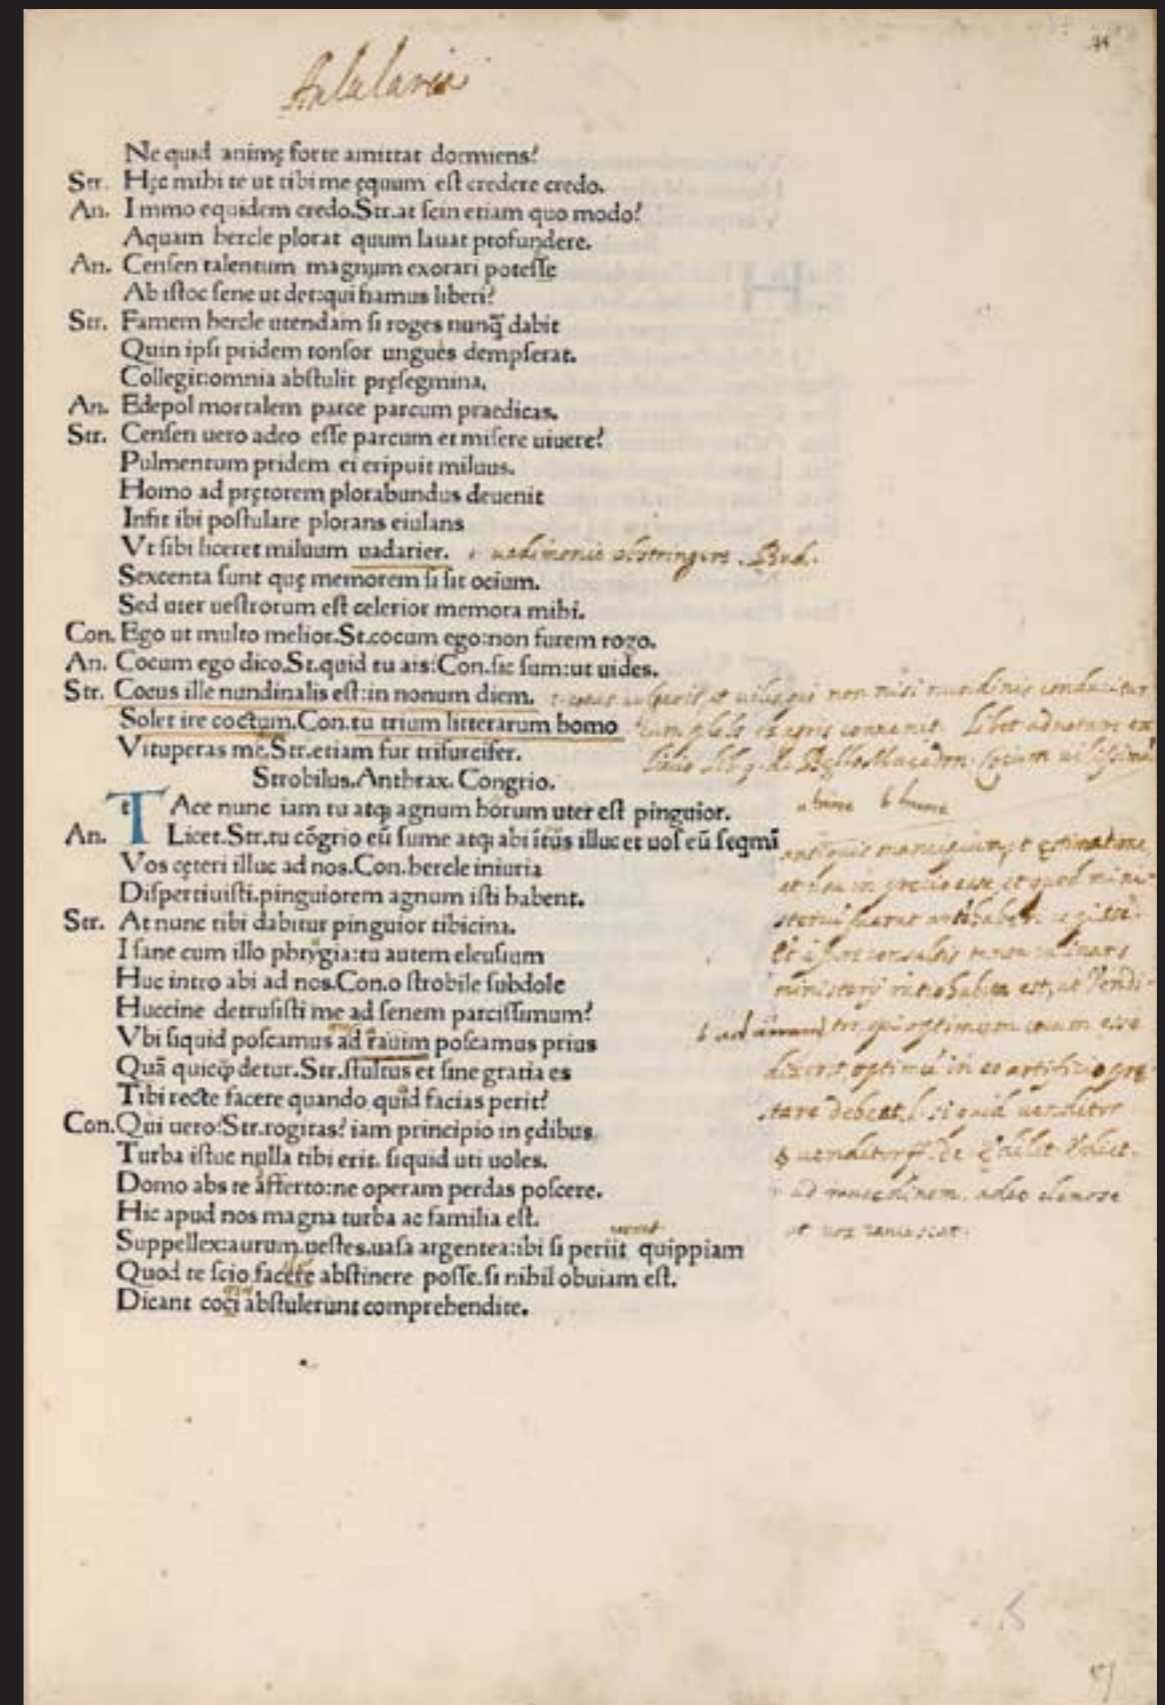 Aulularia
Ne quid animę forte amittat dormiens?
Str. Hęc mihi te ut tibi me ęquum est credere credo.
An. Immo equidem credo.Str.at scin etiam quo modo?
Aquam hercle plorat quum lauat profundere.
An. Censen talentum magnum exorari potesse
Ab istoc sene ut det:qui fiamus liberi?
Str. Famem hercle utendam si roges nunq̃ dabit
Quin ipsi pridem tonsor ungues dempserat.
Collegit:omnia abstulit pręsegmina.
An. Edepol mortalem parce parcum praedicas.
Str. Censen uero adeo esse parcum et misere uiuere?
Pulmentum pridem ei eripuit miluus.
Homo ad prętorem plorabundus deuenit
Infit ibi postulare plorans eiulans
Vt sibi liceret miluum uadarier. uadimonio obstringere. Bud.
Sexcenta sunt quę memorem si sit ocium.
Sed uter uestrorum est celerior memora mihi.
Con. Ego ut multo melior.St.cocum ego:non furem rogo.
An. Cocum ego dico.St.quid tu ais?Con.sic sum:ut uides.
Str. Cocus ille nundinalis est:in nonum diem. et uilis qui non nisi nundinis conducitur
Solet ire coctum.Con.tu trium litterarum homo conuenit. Libet adnotare ex
Vituperas me.Str.etiam fur trifurcifer. Liuio de Bello Macedon. Cocum uilissimum
Strobilus.Anthrax.Congrio.
t TAce nunc iam tu atq; agnum horum uter est pinguior. b hunc
An. Licet.Str.tu cõgrio eũ sume atq; abi ĩtus illuc et uos eũ seqmĩ
Vos cęteri illuc ad nos.Con.hercle iniuria antiquis mancipium, et ęstimatione
Dispertiuisti.pinguiorem agnum isti habent. et usu in precio esse, et quod mini-
Str. At nunc tibi dabitur pinguior tibicina. sterium fuerat
I sane cum illo phrygia:tu autem eleusium
Huc intro abi ad nos.Con.o strobile subdole ministerij ratio habita est, ut Vendi-
Huccine detrusisti me ad senem parcissimum?
Vbi siquid poscamus ad rauim poscamus prius tor, qui optimum cocum esse
Quã quicq̃ detur.Str.stultus et sine gratia es dixerit, optimũ in eo artificio prę-
Tibi recte facere quando quid facias perit? stare debeat. l. si quid uenditor
Con. Qui uero?Str.rogitas?iam principio in ędibus
Turba istuc nulla tibi erit. siquid uti uoles.
Domo abs te afferto:ne operam perdas poscere. adeo clamose
Hic apud nos magna turba ac familia est.
Suppellex:aurum.uestes.uasa argentea:ibi si periit quippiam
Quod te scio facere abstinere posse.si nihil obuiam est.
Dicant coqi abstulerunt comprehendite.